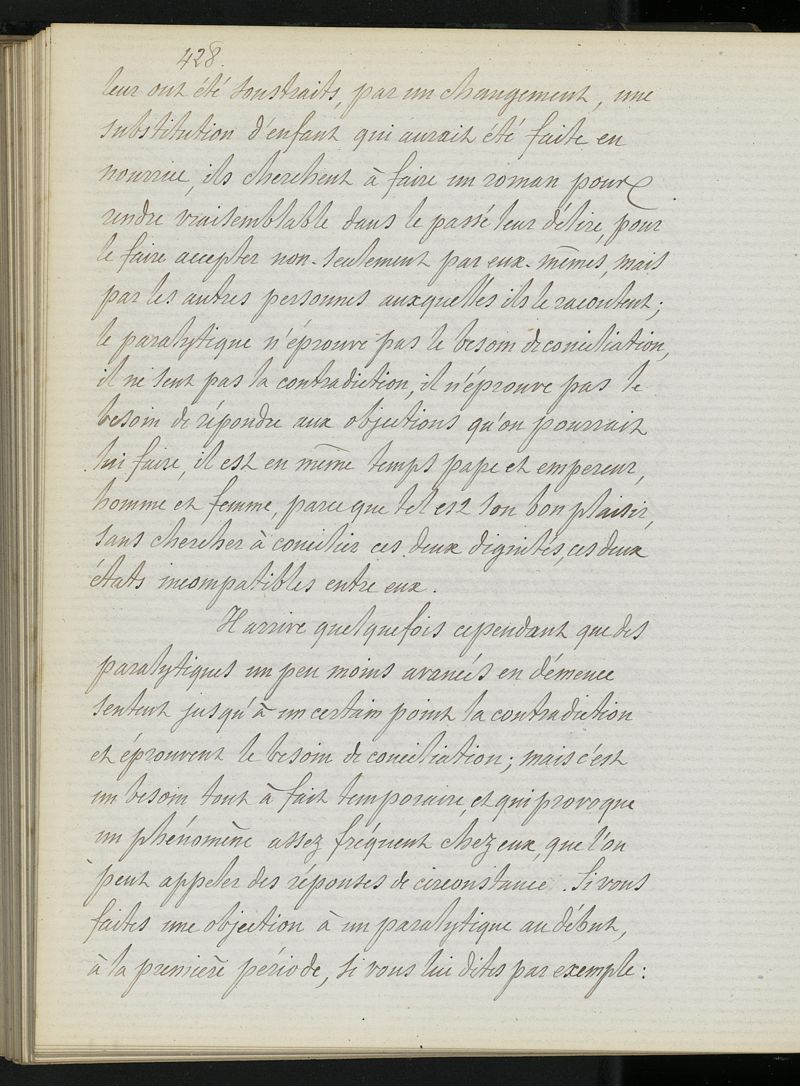 428.
leur ont été soustraits, par un changement, une
substitution d'enfant qui aurait été faite en
nourrice, ils cherchent à faire un roman pour
rendre vraisemblable dans le passé leur délire, pour
le faire accepter non-seulement par eux-mêmes, mais
par les autres personnes auxquelles ils le racontent;
le paralytique n'éprouve pas le besoin de conciliation,
il ne sent pas la contradiction, il n'éprouve pas le
besoin de répondre aux objections qu'on pourrait
lui faire, il est en même temps pape et empereur,
homme et femme, parce que tel est son bon plaisir,
sans chercher à concilier ces deux dignités, ces deux
états incompatibles entre eux.
Il arrive quelquefois cependant que des
paralytiques un peu moins avancés en démence
sentent jusqu'à un certain point la contradiction
et éprouvent le besoin de conciliation; mais c'est
un besoin tout à fait temporaire, et qui provoque
un phénomène assez fréquent chez eux, que l'on
peut appeler des réponses de circonstance. Si vous
faites une objection à un paralytique au début,
à la première période, si vous lui dites par exemple: